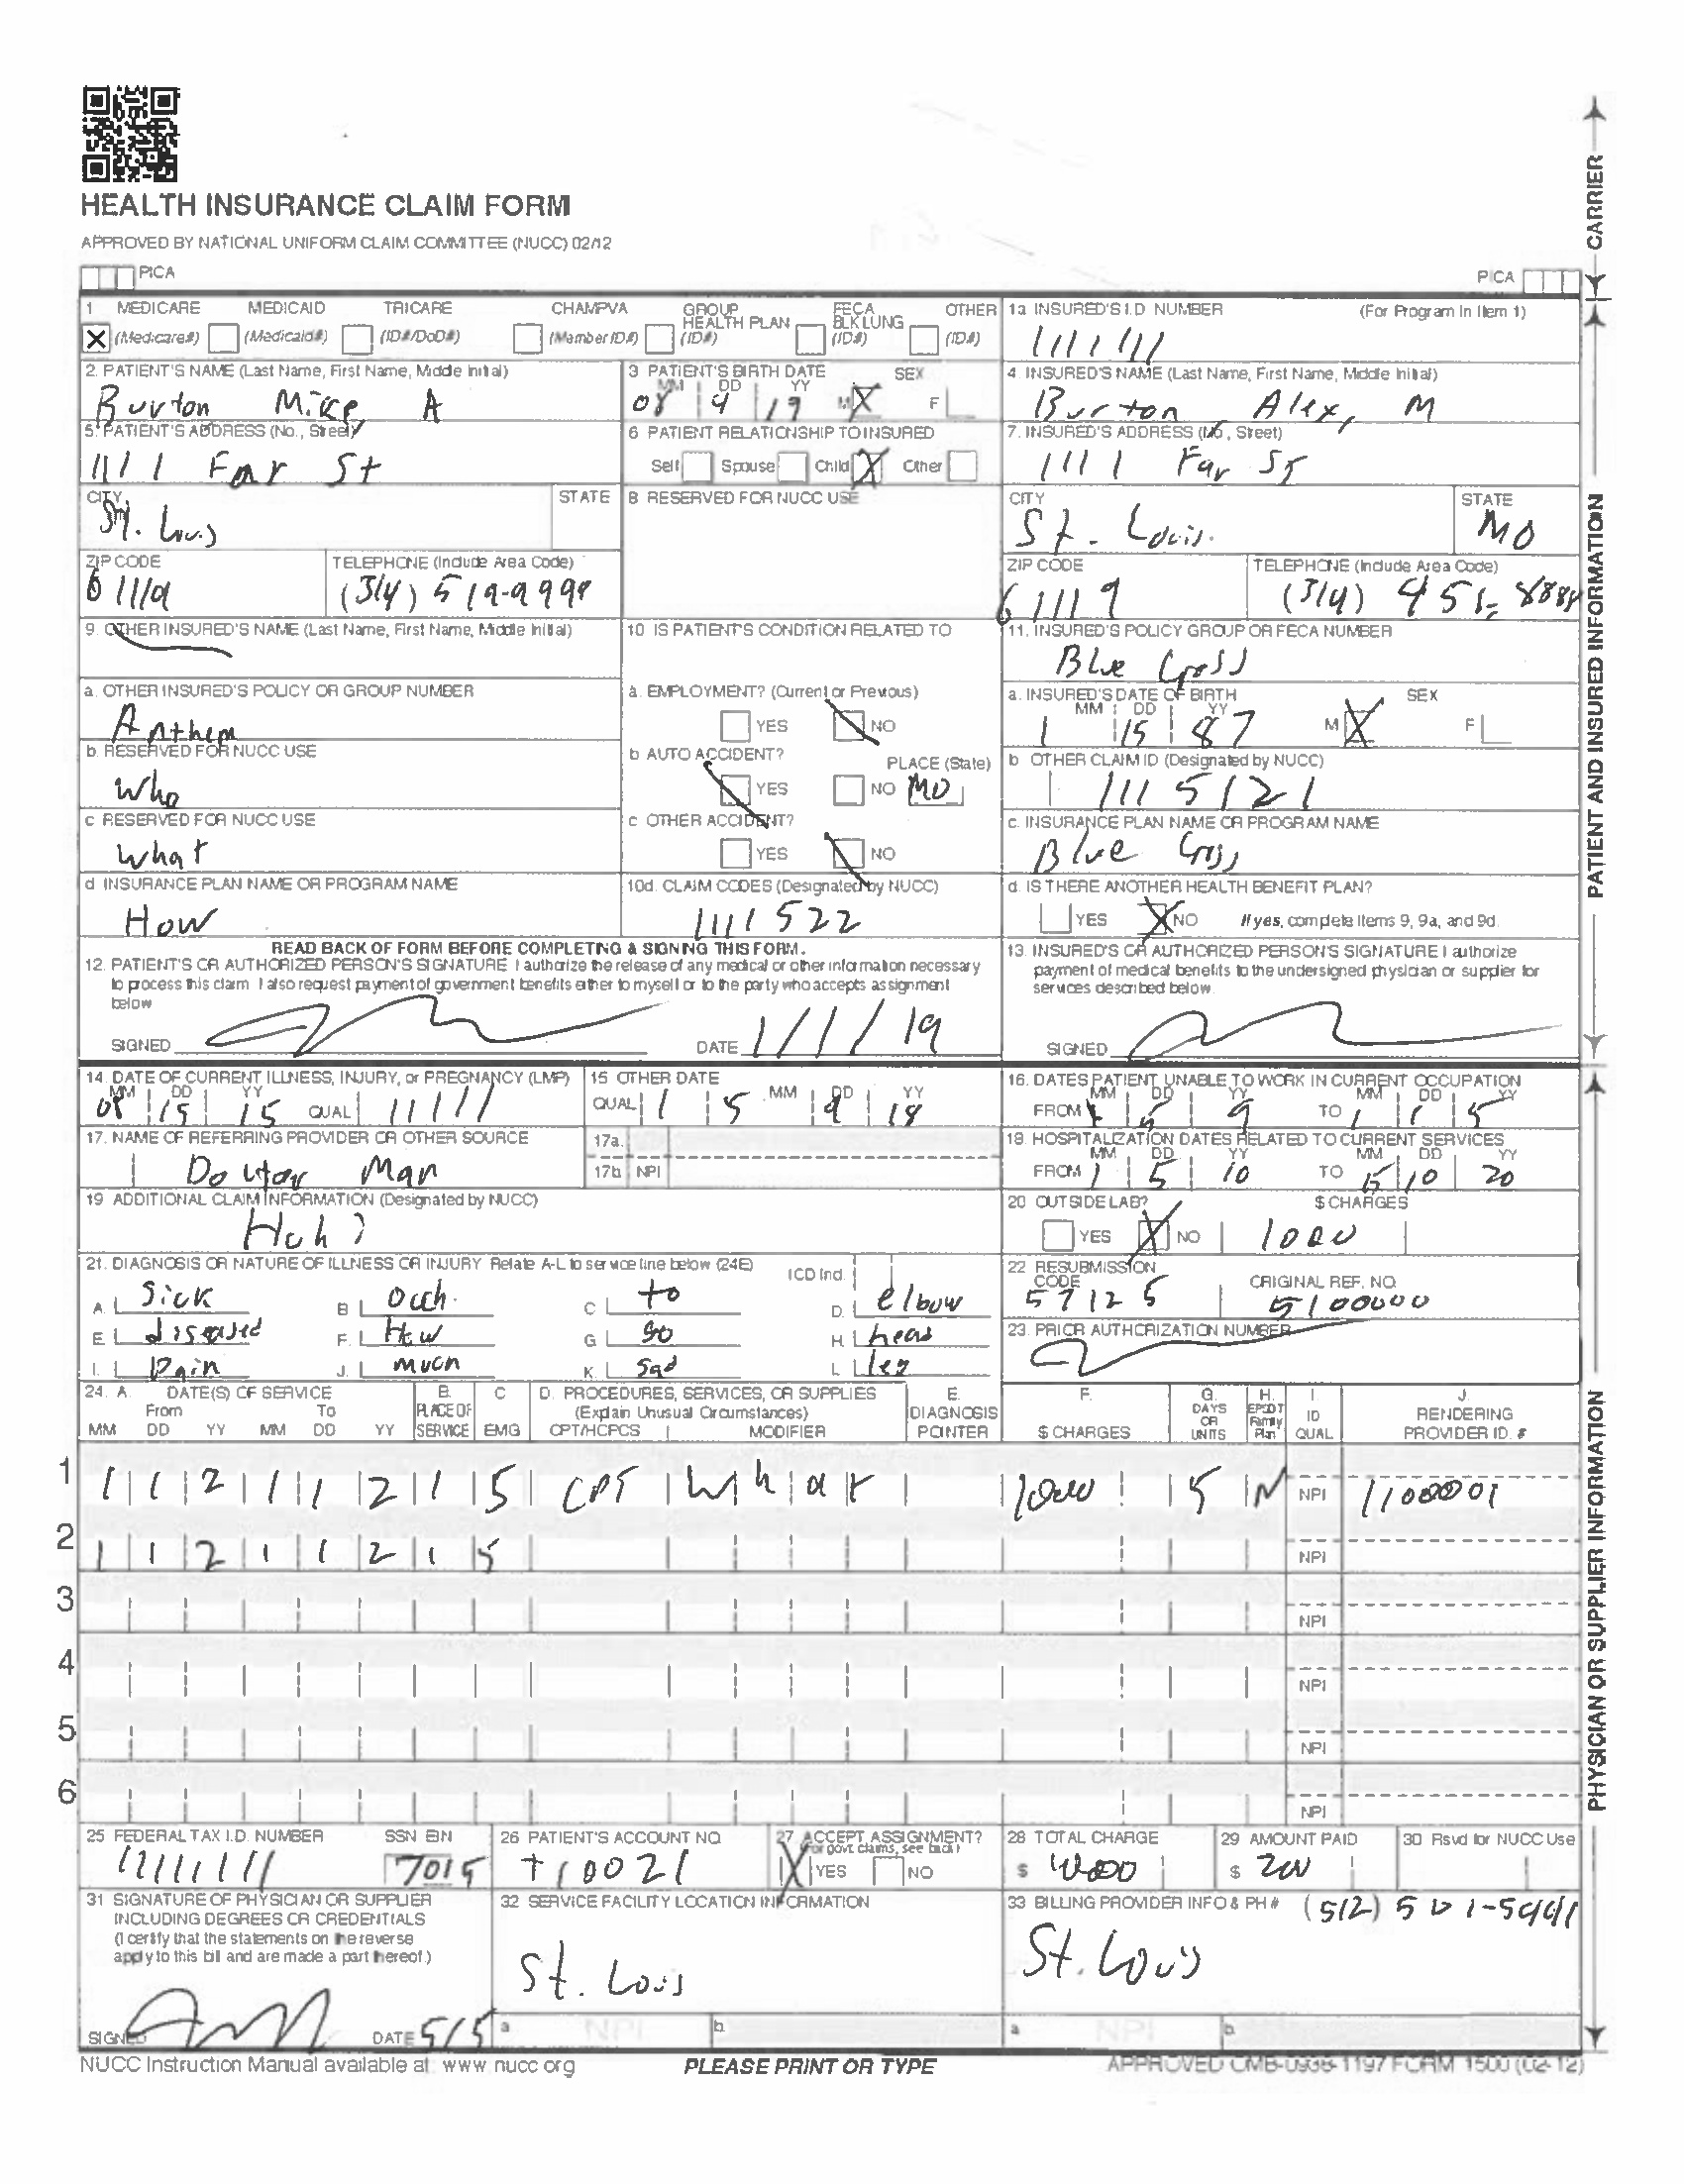 HEALTH INSURANCE CLAIM FORM
APPROVED BY NATIONAL UNIFORM CLAIM COMMITTEE (NUCC) 02/12
PICA
PICA
CARRIER
1 MEDICARE MEDICAID TRICARE CHAMPVA GROUP HEALTH PLAN FECA BLK LUNG OTHER
X (Medicare#) (Medicaid#) (ID#/DoD#) (Member ID#) (ID#) (ID#) (ID#)
1a INSURED'S I.D NUMBER (For Program In Item 1)
1111111
2. PATIENT'S NAME (Last Name, First Name, Middle Initial)
Burton Mike, A
3 PATIENT'S BIRTH DATE SEX
MM DD YY
08 9 19 M X F
4. INSURED'S NAME (Last Name, First Name, Middle Initial)
Burton Alex, M
5. PATIENT'S ADDRESS (No., Street)
1111 Far St
6 PATIENT RELATIONSHIP TO INSURED
Self Spouse Child X Other
7. INSURED'S ADDRESS (No, Street)
1111 Far ST
CITY STATE
St. Louis
8 RESERVED FOR NUCC USE
CITY STATE
St. Louis. MO
ZIP CODE TELEPHONE (Include Area Code)
61119 (314) 519-9998
ZIP CODE TELEPHONE (Include Area Code)
61119 (314) 451-8888
9. OTHER INSURED'S NAME (Last Name, First Name, Middle Initial)
10 IS PATIENT'S CONDITION RELATED TO
11. INSURED'S POLICY GROUP OR FECA NUMBER
Blue Cross
a. OTHER INSURED'S POLICY OR GROUP NUMBER
Anthem
a. EMPLOYMENT? (Current or Previous)
YES NO
a. INSURED'S DATE OF BIRTH SEX
MM DD YY
1 15 87 M X F
b RESERVED FOR NUCC USE
Who
b AUTO ACCIDENT? PLACE (State)
YES NO MO
b OTHER CLAIM ID (Designated by NUCC)
1115121
c RESERVED FOR NUCC USE
What
c OTHER ACCIDENT?
YES NO
c. INSURANCE PLAN NAME OR PROGRAM NAME
Blue Cross
d INSURANCE PLAN NAME OR PROGRAM NAME
How
10d. CLAIM CODES (Designated by NUCC)
1111522
d. IS THERE ANOTHER HEALTH BENEFIT PLAN?
YES X NO If yes, complete items 9, 9a, and 9d.
READ BACK OF FORM BEFORE COMPLETING & SIGNING THIS FORM.
12. PATIENT'S OR AUTHORIZED PERSON'S SIGNATURE I authorize the release of any medical or other information necessary
to process this claim I also request payment of government benefits either to myself or to the party who accepts assignment
below
SIGNED DATE 1/1/19
13. INSURED'S OR AUTHORIZED PERSON'S SIGNATURE I authorize
payment of medical benefits to the undersigned physician or supplier for
services described below.
SIGNED
PATIENT AND INSURED INFORMATION
14. DATE OF CURRENT ILLNESS, INJURY, or PREGNANCY (LMP)
MM DD YY
08 15 15 QUAL 11111
15 OTHER DATE
QUAL 1 5 MM DD YY
9 18
16. DATES PATIENT UNABLE TO WORK IN CURRENT OCCUPATION
MM DD YY MM DD YY
FROM 1 5 9 TO 1 1 5
17. NAME OF REFERRING PROVIDER OR OTHER SOURCE
Doctor Man
17a.
17b NPI
18. HOSPITALIZATION DATES RELATED TO CURRENT SERVICES
MM DD YY MM DD YY
FROM 1 5 10 TO 5 10 20
19 ADDITIONAL CLAIM INFORMATION (Designated by NUCC)
Huh?
20 OUTSIDE LAB? $ CHARGES
YES X NO 1000
21. DIAGNOSIS OR NATURE OF ILLNESS OR INJURY Relate A-L to service line below (24E) ICD Ind.
A. Sick B Ouch. C to D. elbow
E diseased F. How G so H. head
I. Pain J. much K. sad L leg
22 RESUBMISSION CODE ORIGINAL REF. NO.
57125 5100000
23. PRIOR AUTHORIZATION NUMBER
24. A. DATE(S) OF SERVICE B. C D. PROCEDURES, SERVICES, OR SUPPLIES E. F. G. H. I J.
From To PLACE OF (Explain Unusual Circumstances) DIAGNOSIS DAYS OR EPSDT Family ID RENDERING
MM DD YY MM DD YY SERVICE EMG CPT/HCPCS MODIFIER POINTER $ CHARGES UNITS Plan QUAL PROVIDER ID. #
1 1 1 2 1 1 2 1 5 CPT What 1000 5 N NPI 1100001
2 1 1 2 1 1 2 1 5 NPI
3 NPI
4 NPI
5 NPI
6 NPI
25 FEDERAL TAX I.D. NUMBER SSN EIN
11111111 7015
26 PATIENT'S ACCOUNT NO.
110021
27 ACCEPT ASSIGNMENT?
(For govt. claims, see back)
X YES NO
28 TOTAL CHARGE
$
29 AMOUNT PAID
$ 200
30 Rsvd for NUCC Use
31 SIGNATURE OF PHYSICIAN OR SUPPLIER
INCLUDING DEGREES OR CREDENTIALS
(I certify that the statements on the reverse
apply to this bill and are made a part thereof.)
SIGNED DATE 5/5
32 SERVICE FACILITY LOCATION INFORMATION
St. Louis
a NPI b.
33 BILLING PROVIDER INFO & PH # (512) 501-5991
St. Louis
a NPI b
PHYSICIAN OR SUPPLIER INFORMATION
NUCC Instruction Manual available at: www.nucc.org
PLEASE PRINT OR TYPE
APPROVED OMB-0938-1197 FORM 1500 (02-12)